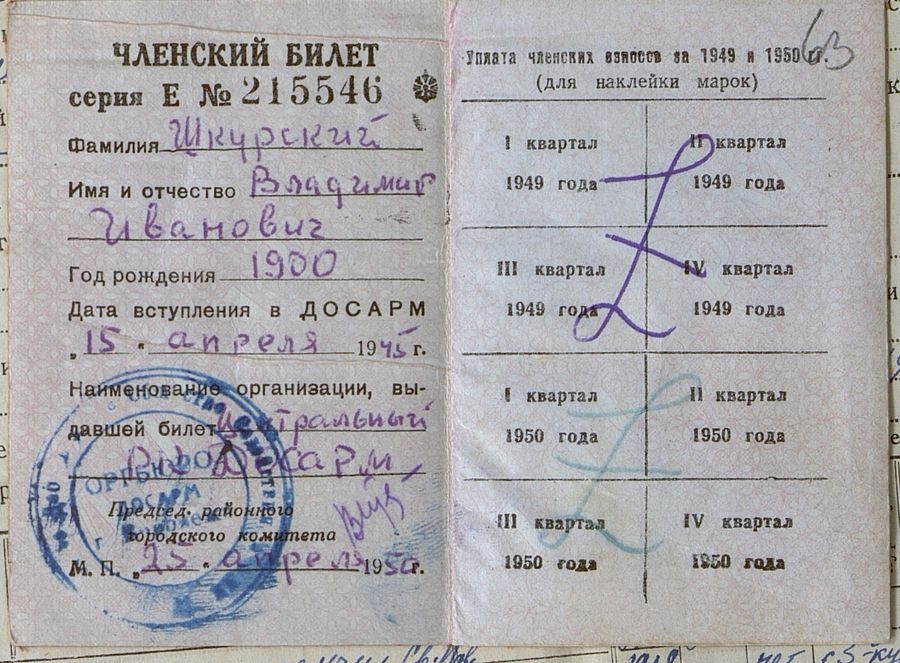 ЧЛЕНСКИЙ БИЛЕТ
серия Е № 215546
Фамилия Шкурский
Имя и отчество Владимир
Иванович
Год рождения 1900
Дата вступления в ДОСАРМ
„15 “ апреля 1945 г.
Наименование организации, вы-
давшей билет Центральный
РК Досарм
Председ. районного
городского комитета
М. П. „25 “ апреля 1950 г.
ОРГБЮРО
ДОСАРМ
63
Уплата членских взносов за 1949 и 1950 г.г.
(для наклейки марок)
I квартал
1949 года
II квартал
1949 года
III квартал
1949 года
IV квартал
1949 года
I квартал
1950 года
II квартал
1950 года
III квартал
1950 года
IV квартал
1950 года